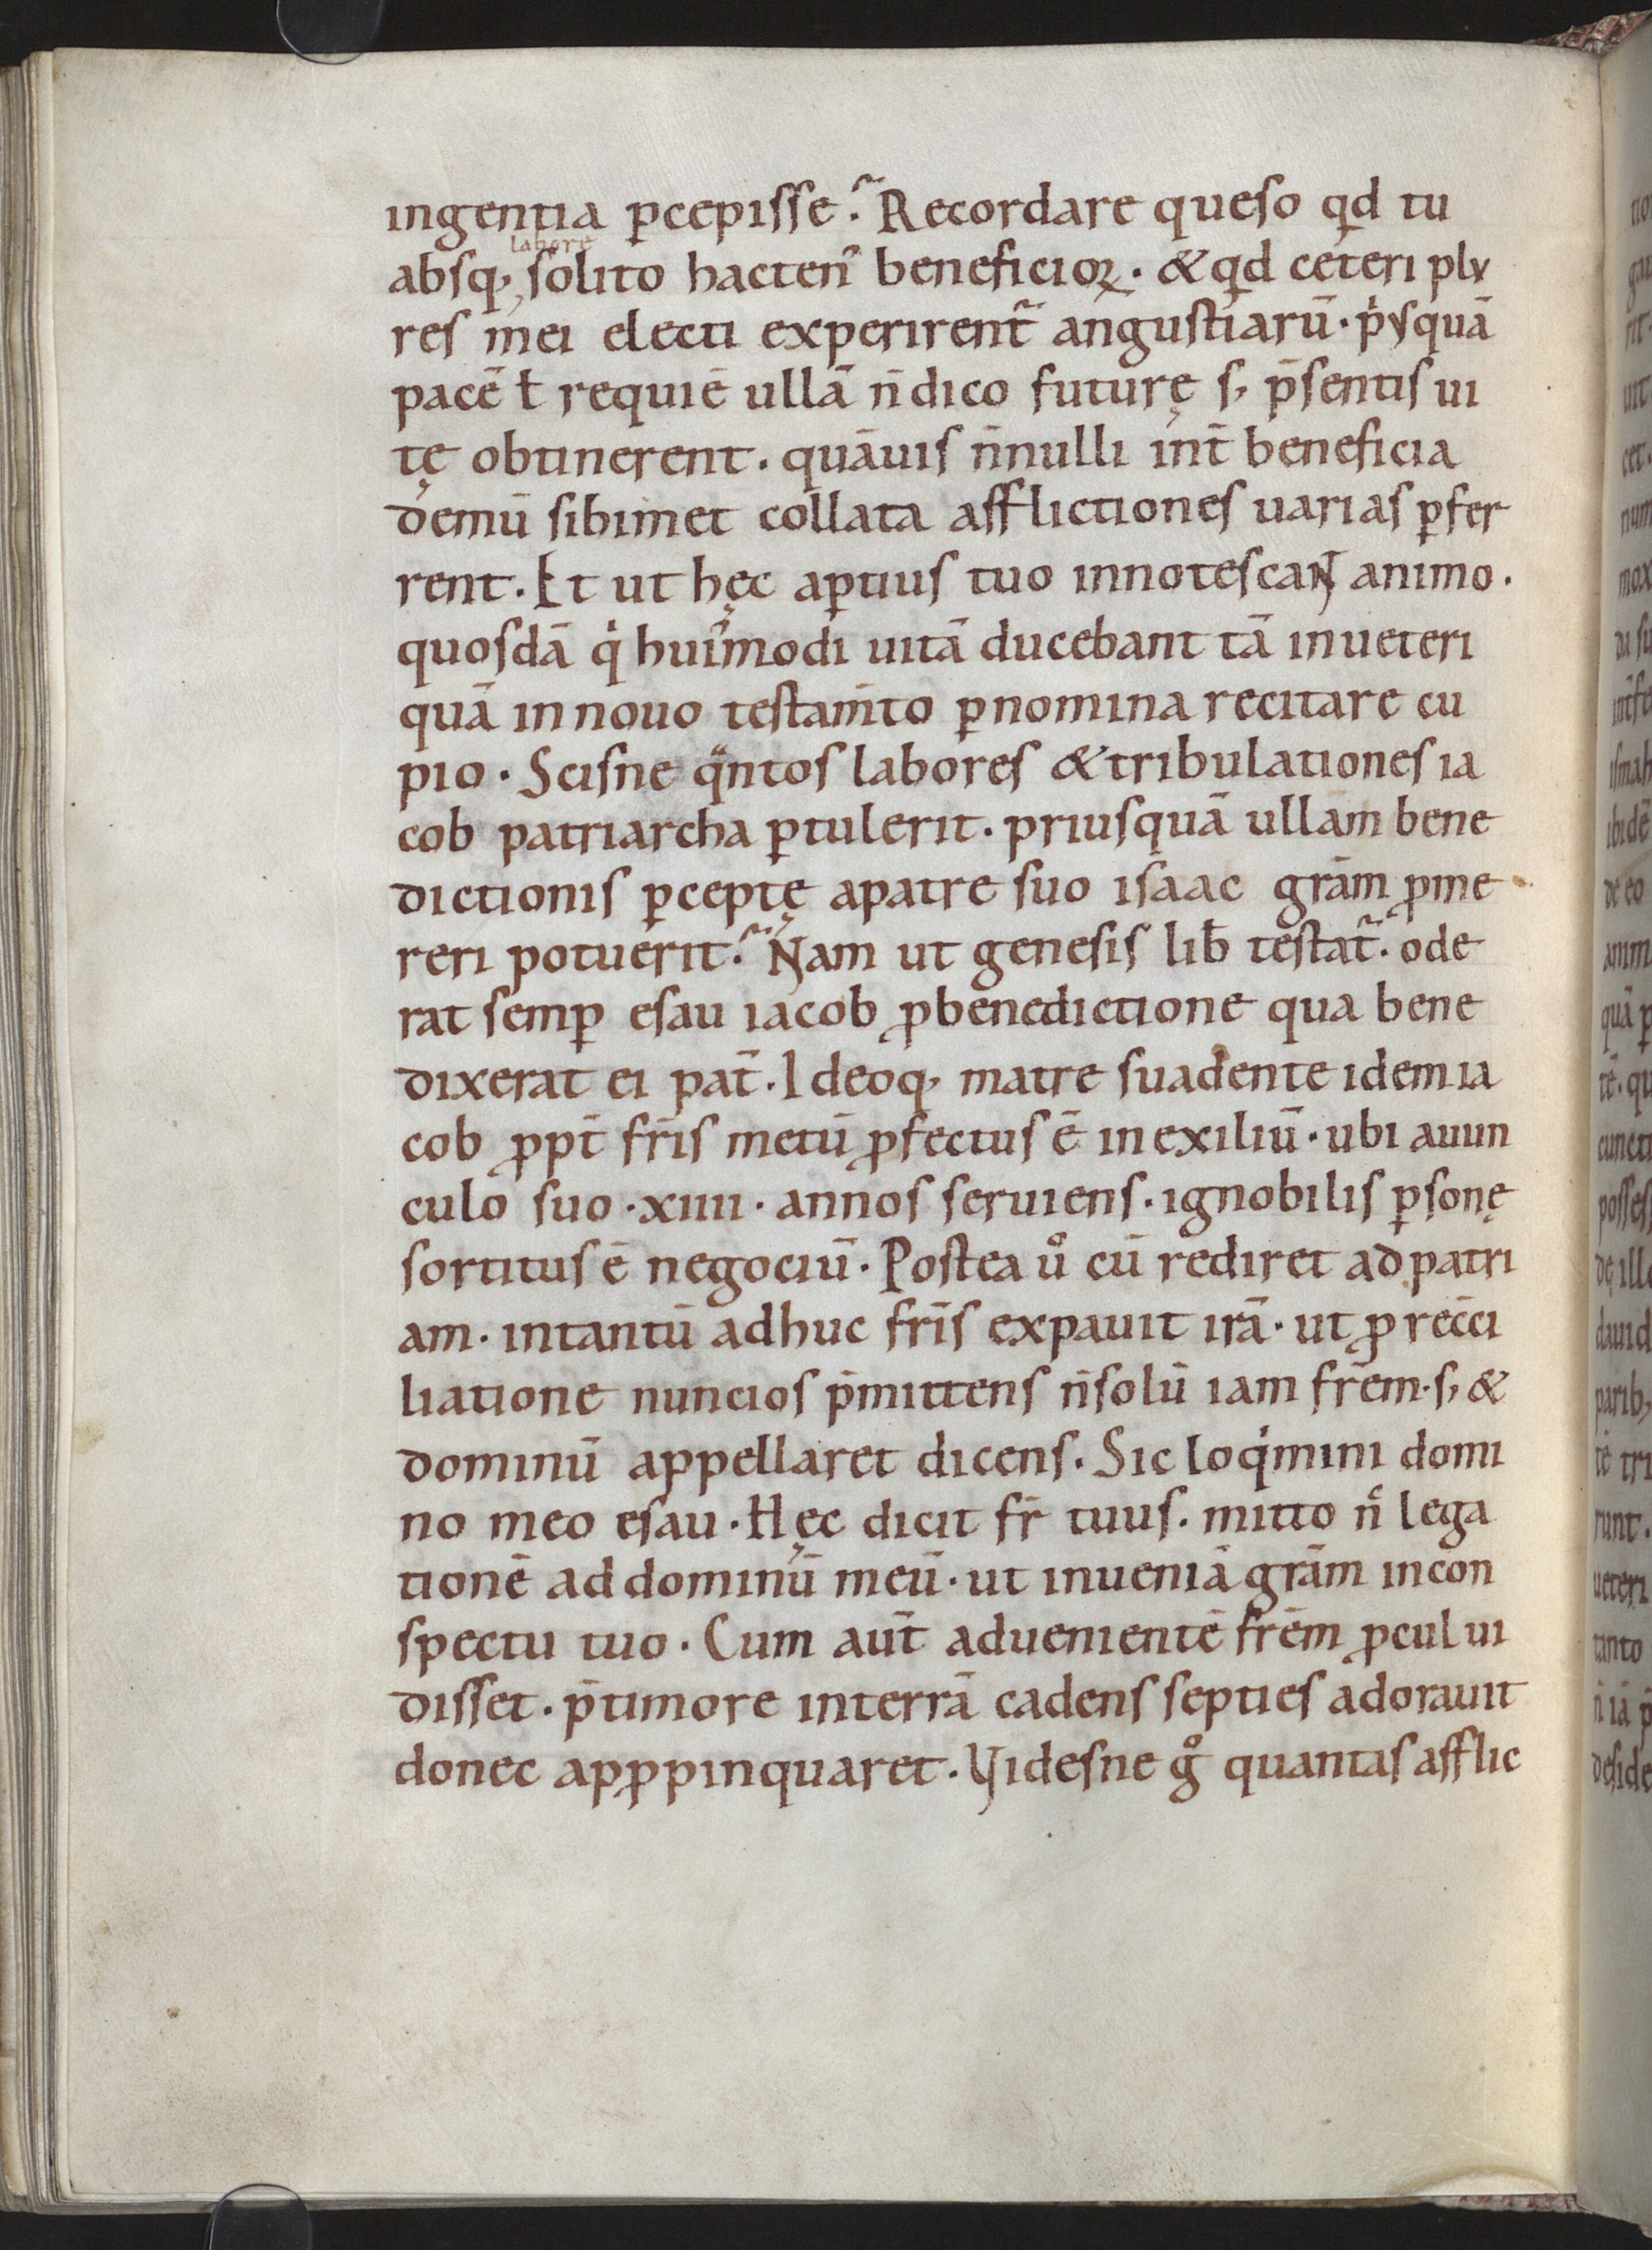 ingentia ꝑcepisse. Recordare queso qđ tu
labore
absq; solito hacten᾿ beneficioꝝ. & qđ ceteri plu
res mei electi experirent᷑ angustiarū. p̍usquā
pacē ł requiē ullā n̄ dico futurę s; p̄sentis ui
tę obtinerent. quāuis n̄nulli int̄ beneficia
demū sibimet collata afflictiones uarias ꝑfer
rent. Et ut hęc aꝑtius tuo innotescant animo.
quosdā q̍ hui᾿modi uitā ducebant tā in ueteri
quā in nouo testam̄to ꝑ nomina recitare cu
pio. Scisne qᵃntos labores & tribulationes ia
cob patriarcha ꝑtulerit. priusquā ullam bene
dictionis ꝑceptę a patre suo isaac grām ꝓme
reri potuerit. Nam ut genesis lib̄ testat᷑. ode
rat semꝑ esau iacob ꝓ benedictione qua bene
dixerat ei pat̄. Ideoq; matre suadente idem ia
cob ꝓpt̄ fr̄is metū ꝓfectus ē in exiliū. ubi auun
culo suo .xiiii. annos seruiens. ignobilis ꝑsonę
sortitus ē negociū. Postea uº cū rediret ad patri
am. in tantū adhuc fr̄is expauit irā. ut ꝓ rec̄ci
liatione nuncios p̄mittens n̄ solū iam fr̄em. s; &
dominū appellaret dicens. Sic loq̍mini domi
no meo esau. Hęc dicit fr̄ tuus. mitto n̄c lega
tionē ad dominū meū. ut inueniā grām in con
spectu tuo. Cum aut̄ aduenientē fr̄em ꝓcul ui
disset. p̄ timore in terrā cadens septies adorauit
donec apꝓpinquaret. Uidesne gº quantas afflic